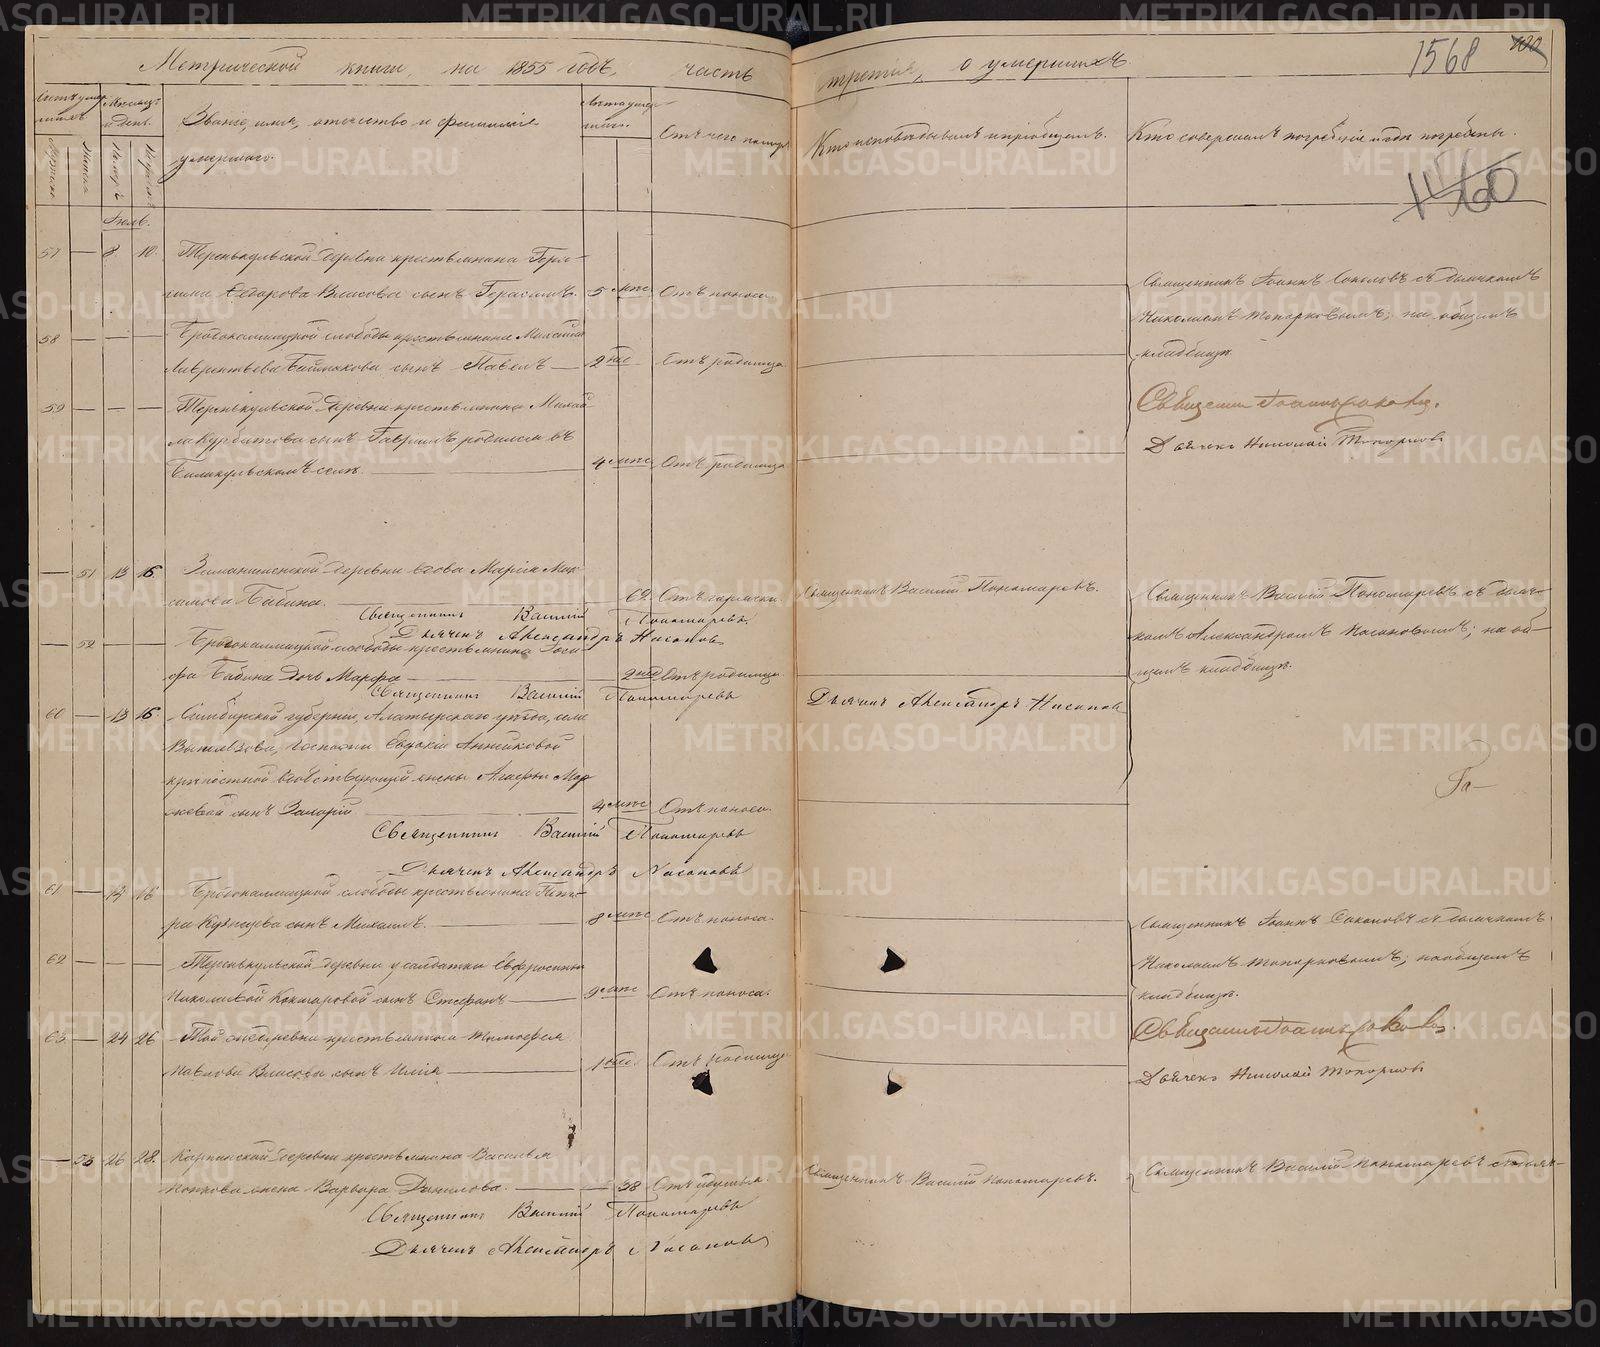 Метрической книги, на 1855 годъ, часть третія, о умершихъ
1568
Счетъ умершихъ
Мѣсяцъ и день.
Званіе, имя, отчество и фамилія умершаго.
Лѣта умершаго.
Отъ чего померъ
Кто исповѣдывалъ и пріобщалъ.
Кто совершалъ погребеніе и гдѣ погребены.
1560
Іюль.
57 — 8 10. Теренькульской деревни крестьянина
Ѳедорова Власова сынъ Герасимъ. 5 мѣс Отъ поноса
58 — — — Бродокалмацкой слободы крестьянина
Лаврентьева сынъ Павелъ — 2 нед Отъ родимца
59 — — — Теренькульской деревни крестьянина Михай-
ла Курбатова сынъ Гавріилъ родился въ
селѣ. 4 мѣс Отъ родимца
Священникъ Іоаннъ Соколовъ съ дьячкомъ
Николаемъ Топорковымъ; на общемъ
кладбищѣ.
Священникъ Іоаннъ Соколовъ.
Дьячекъ Николай Топорковъ
— 51 13 15 деревни вдова Марія Мак-
симова Бабина. 62 Отъ горячки.
Священникъ Василій Пономаревъ.
Священникъ Василій Пономаревъ
Дьячекъ Александръ Насоновъ
Священникъ Василій Пономаревъ съ дьяч-
комъ Александромъ Насоновымъ; на об-
щемъ кладбищѣ.
— 52 — — Бродокалмацкой слободы крестьянина Іоси-
фа Бабина дочь Марфа — нед Отъ родимца.
Священникъ Василій Пономаревъ
Дьячекъ Александръ Насоновъ
60 — 13 15 Симбирской губерніи, Алатырскаго уѣзда, села
госпожи Евдокіи Анниковой
крѣпостной жены Агафьи Мар-
ковой сынъ Захарій 4 мѣс Отъ поноса.
Священникъ Василій Пономаревъ
Дьячекъ Александръ Насоновъ
Га—
61 — 14 16 Бродокалмацкой слободы крестьянина Пет-
ра Кузнецова сынъ Михаилъ. 8 мѣс Отъ поноса.
62 — — — Теренькульской деревни у солдатки Евфросиньи
Николаевой сынъ Стефанъ — 9 мѣс Отъ поноса.
63 — 24 26 Той же деревни крестьянина Тимофея
Павлова Власова сынъ Илія — 1 нед. Отъ родимца
Священникъ Іоаннъ Соколовъ съ дьячкомъ
Николаемъ Топорковымъ; на общемъ
кладбищѣ.
Священникъ Іоаннъ Соколовъ.
Дьячекъ Николай Топорковъ
— 53 26 28. деревни крестьянина Василья
Попкова жена Варвара Данилова. — 38 Отъ удушья.
Священникъ Василій Пономаревъ.
Священникъ Василій Пономаревъ съ дьяч-
Священникъ Василій Пономаревъ
Дьячекъ Александръ Насоновъ
METRIKI.GASO-URAL.RU